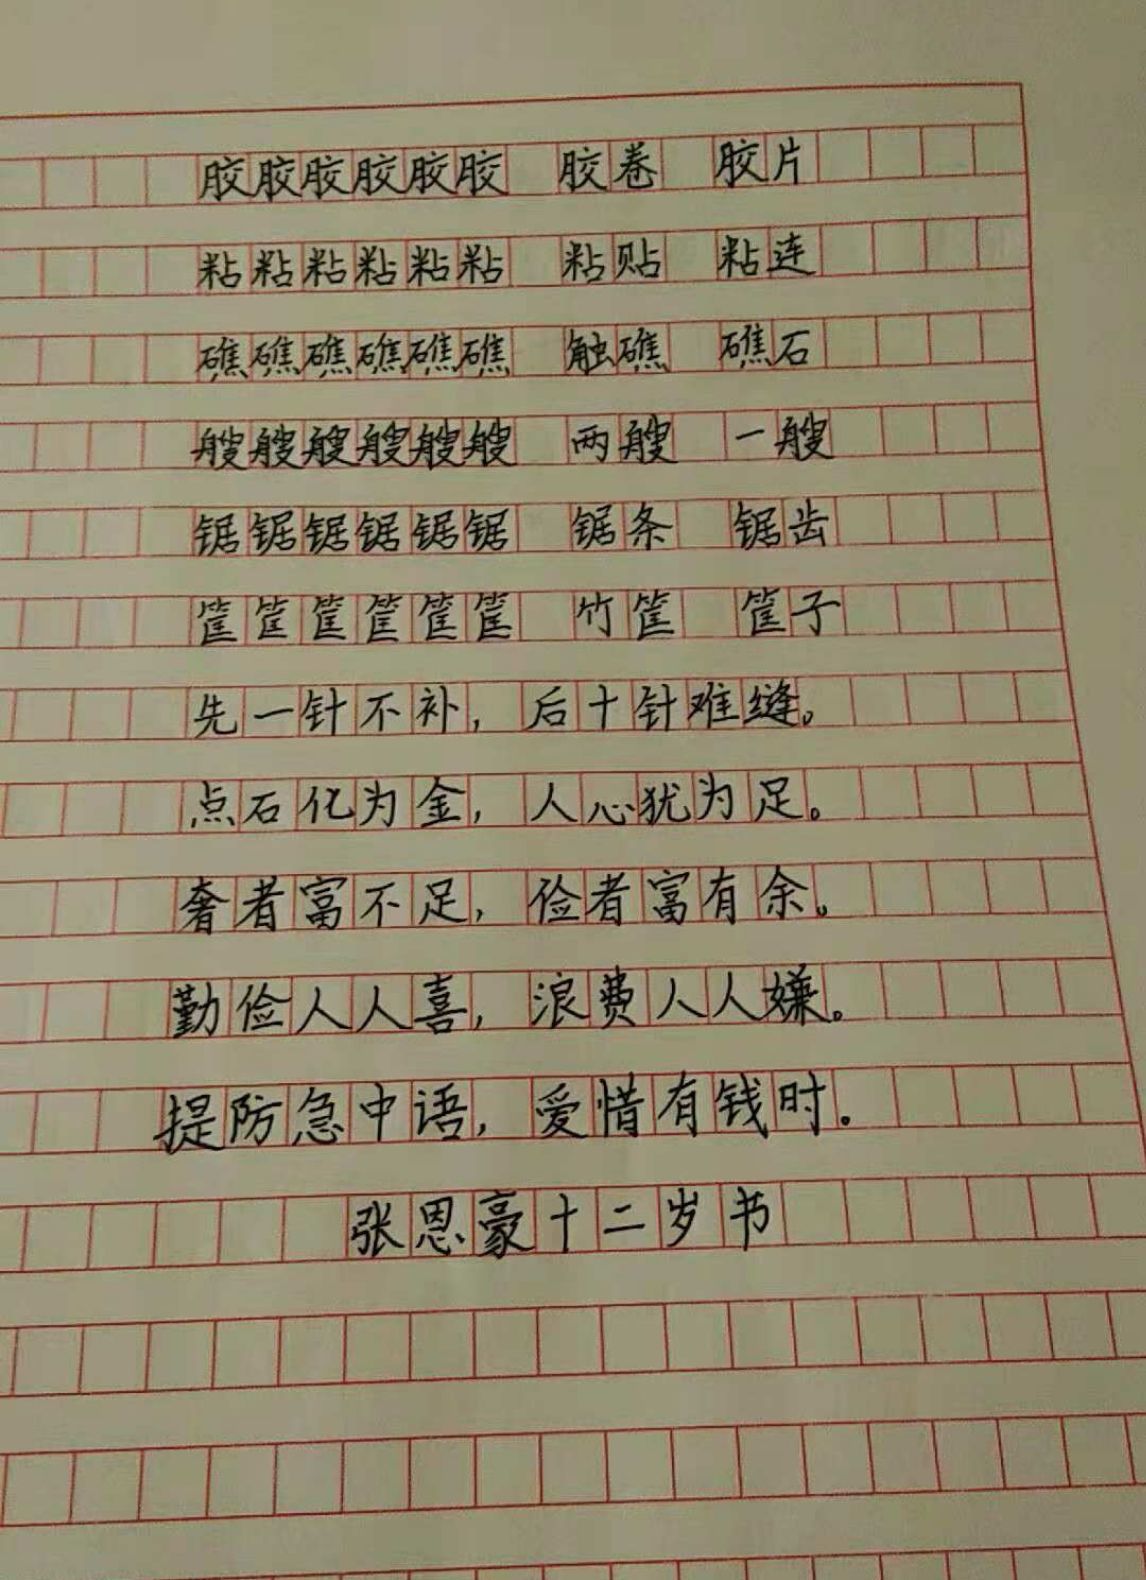 胶胶胶胶胶胶 胶卷 胶片
粘粘粘粘粘粘 粘贴 粘连
礁礁礁礁礁礁 触礁 礁石
艘艘艘艘艘艘 两艘 一艘
锯锯锯锯锯锯 锯条 锯齿
筐筐筐筐筐筐 竹筐 筐子
先一针不补，后十针难缝。
点石化为金，人心犹为足。
奢者富不足，俭者富有余。
勤俭人人喜，浪费人人嫌。
提防急中语，爱惜有钱时.
张恩豪十二岁书